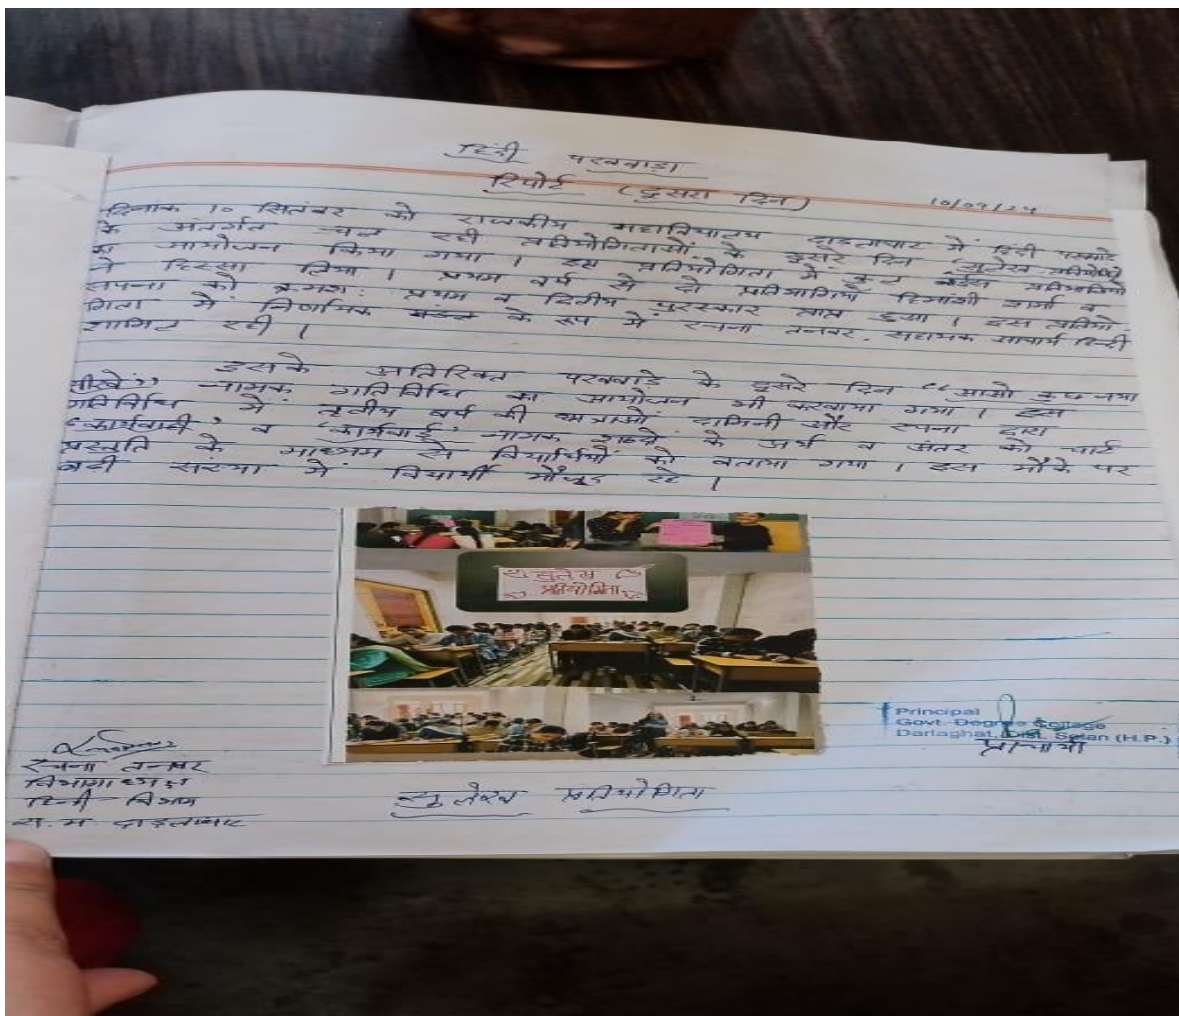 हिंदी पखवाड़ा
रिपोर्ट (दुसरा दिन)
10/09/24
दिनांक 10 सितंबर को राजकीय महाविद्यालय दाड़लाघाट में हिंदी पखवाड़े
के अंतर्गत चल रही प्रतियोगिताओं के दुसरे दिन सुलेख प्रतियोगिता
का आयोजन किया गया । इस प्रतियोगिता में कुल प्रतिभागियों
ने हिस्सा लिया । प्रथम वर्ष से दो प्रतिभागियों हिमांशी शर्मा व
सपना को क्रमशः प्रथम व द्वितीय पुरस्कार प्राप्त हुया । इस प्रतियो-
गिता में निर्णायक के रूप में रचना तनवर, सहायक आचार्य हिन्दी
शामिल रही ।
इसके अतिरिक्त पखवाड़े के दुसरे दिन "आओ कुछ नया
सीखें" नामक गतिविधि का आयोजन भी करवाया गया । इस
गतिविधि में तृतीय वर्ष की छात्राओं दामिनी और सपना द्वारा
'कार्यवाही' व 'कार्रवाई' नामक शब्दों के अर्थ व अंतर को चार्ट
प्रस्तुति के माध्यम से विद्यार्थियों को बताया गया । इस मौके पर
बड़ी संख्या में विद्यार्थी मौजूद रहे ।
सुलेख
प्रतियोगिता
Principal
Govt. Degree College
Darlaghat, Distt. Solan (H.P.)
प्राचार्या
रचना तनवर
विभागाध्यक्ष
हिन्दी विभाग
रा. म. दाड़लाघाट
सुलेख प्रतियोगिता